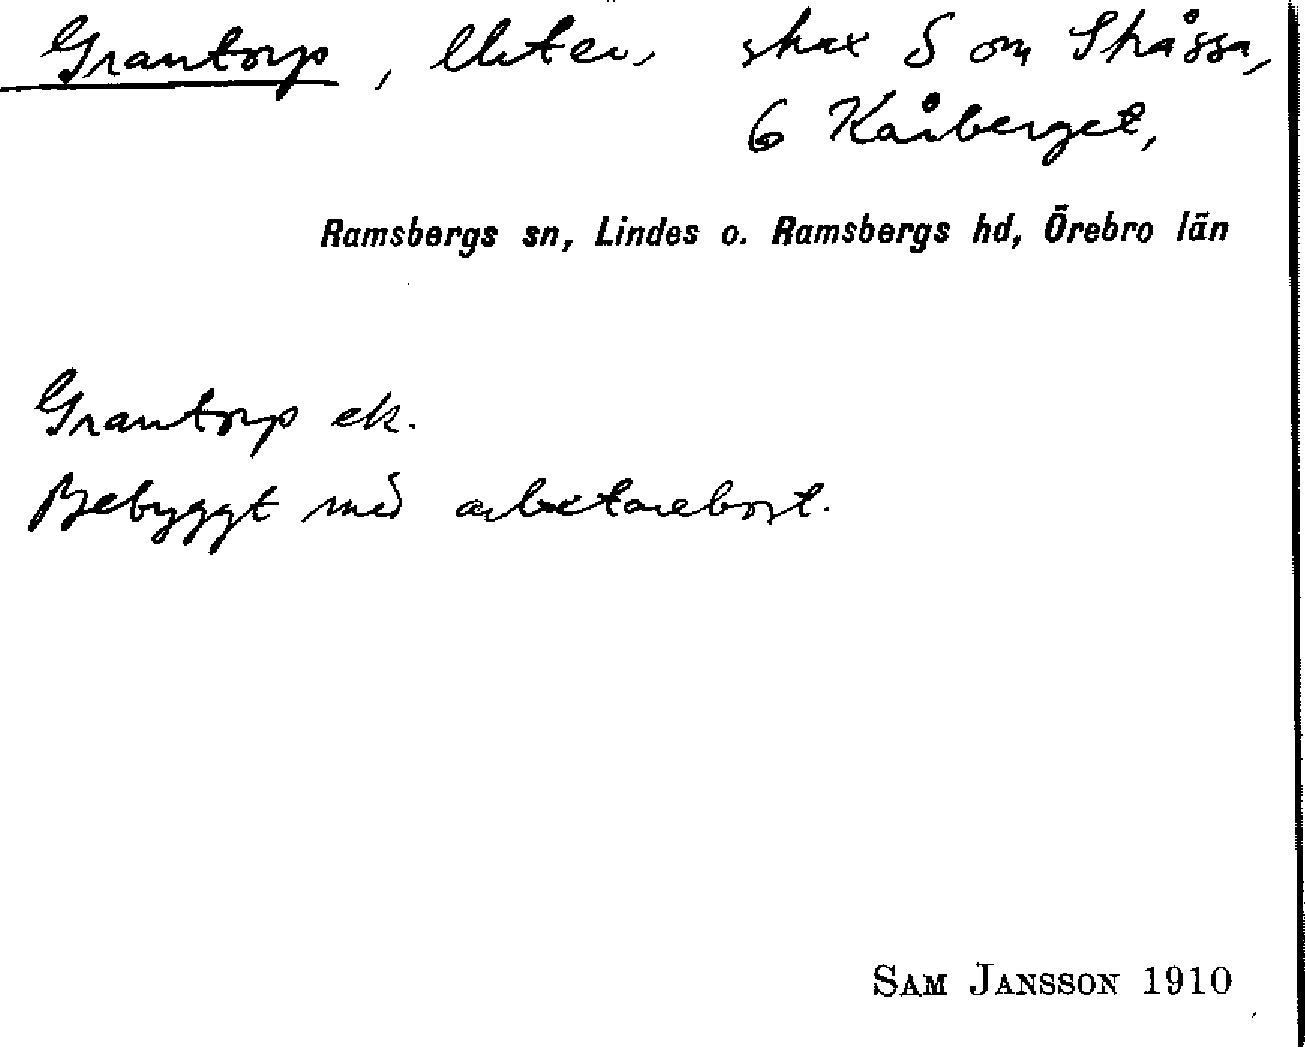 Grantorp, lht en, strax S om Stråssa,
6 Kåberget,
Ramsbergs sn, Lindes o. Ramsbergs hd, Örebro län
Grantorp ek.
Bebyggt med arbetarebost.
SAM JANSSON 1910